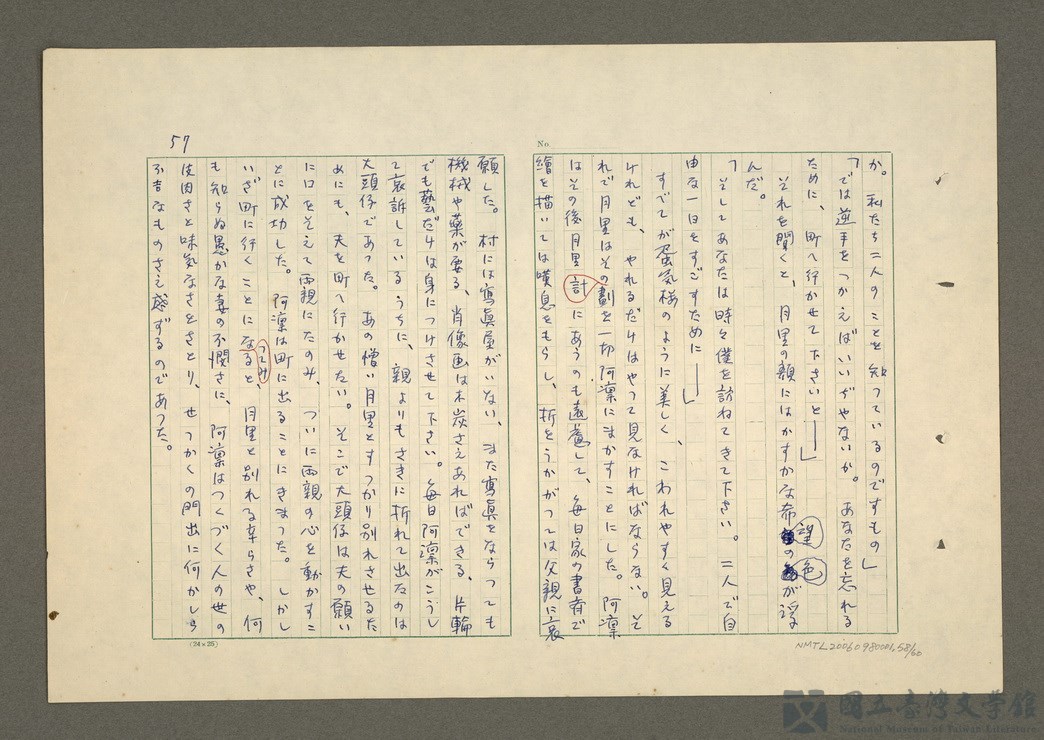 か。私たち二人のことを知っているのですもの」
「では逆手をつかえばいいぢやないか。あなたを忘れる
ために、町へ行かせて下さいと――」
それを聞くと、月里の顔にはかすかな希望の色が浮
んだ。
「そしてあなたは時々僕を訪ねてきて下さい。二人で自
由な一日をすごすために――」
すべてが蜃気楼のように美しく、こわれやすく見える
けれども、やれるだけはやって見なければならない。そ
れで月里はその計劃を一切阿凜にまかすことにした。阿凜
はその後月里にあうのも遠慮して、毎日家の書斎で
繪を描いては嘆息をもらし、折をうかがっては父親に哀
57
願した。村には寫眞屋がいない、また寫眞をならっても
機械や藥が要る、肖像画は木炭さえあればできる、片輪
でも藝だけは身につけさせて下さい。毎日阿凜がこうし
て哀訴しているうちに、親よりもさきに折れて出たのは
大頭仔であった。あの憎い月里とすっかり別れさせるた
めにも、夫を町へ行かせたい。そこで大頭仔は夫の願い
に口をそえて両親にたのみ、ついに両親の心を動かすこ
とに成功した。阿凜は町に出ることにきまった。しかし
いざ町に行くことになってみると、月里と別れる辛らさや、何
も知らぬ愚かな妻の不憫さに、阿凜はつくづく人の世の
皮肉さと味気なさをさとり、せっかくの門出に何かしら
不吉なものさえ感ずるのであった。
No.
(24×25)
NMTL20060980001,58/60
國立臺灣文學館
National Museum of Taiwan Literature